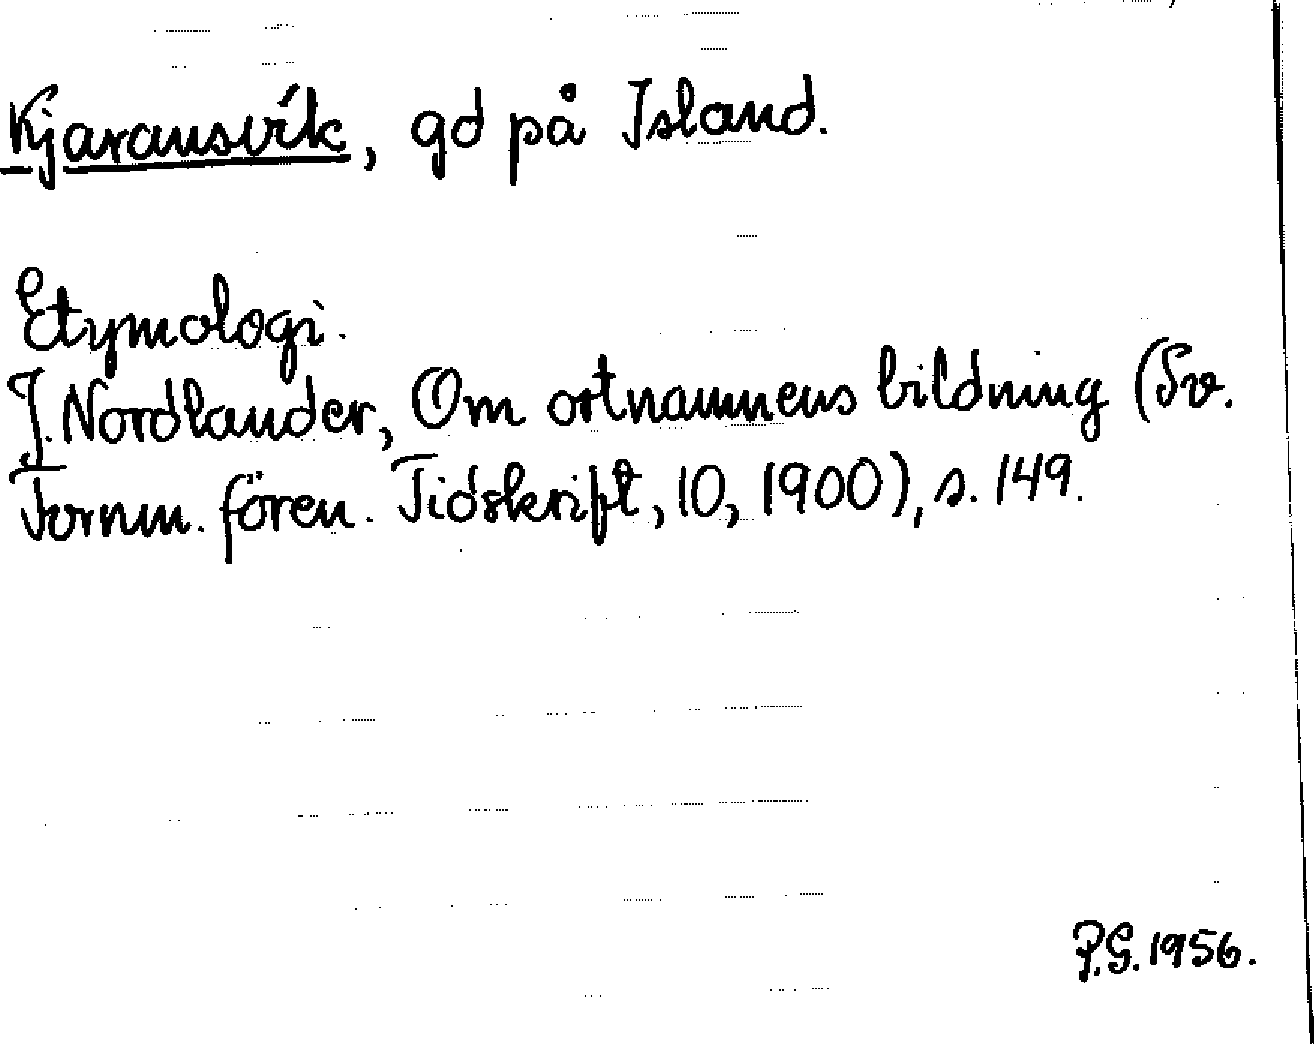 Kjaransvík, gd på Island.
Etymologi.
J. Nordlander, Om ortnamnens bildning (Sv.
Fornm. fören. Tidskrift, 10, 1900), s. 149.
P.G. 1956.